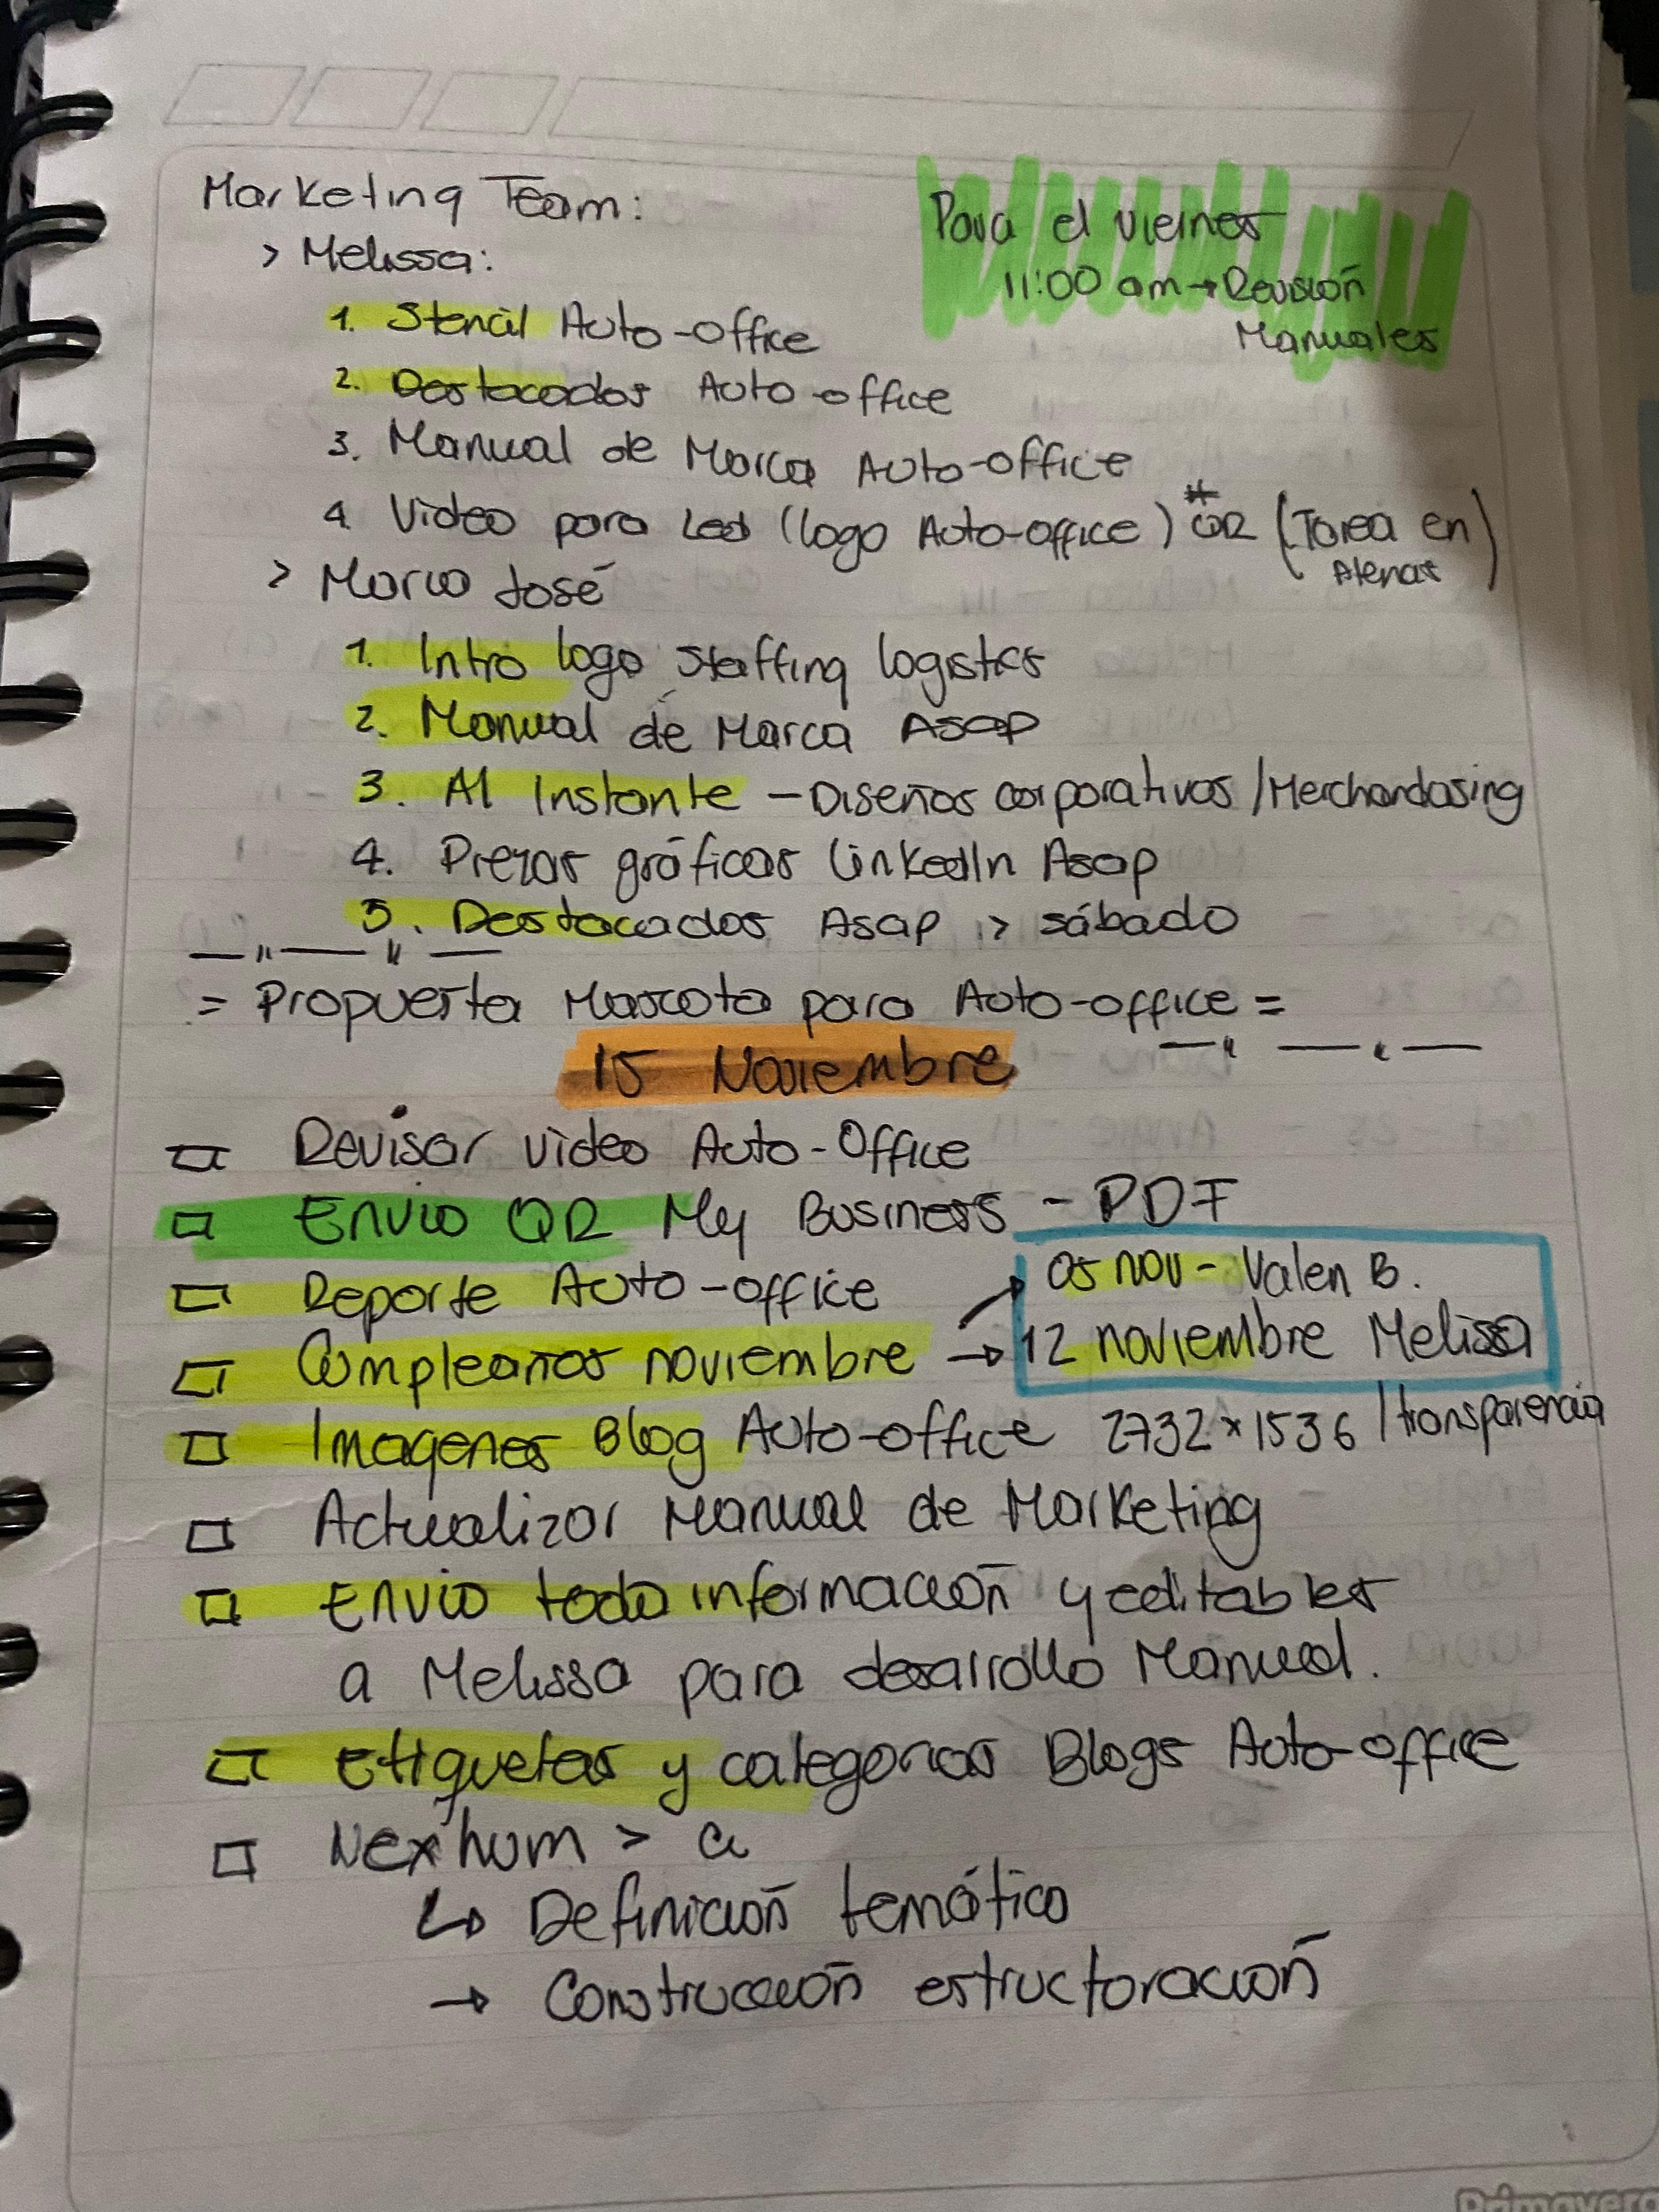 Marketing Team:
Para el viernes
> Melissa:
11:00 am → Revisión
Manuales
1. Stencil Auto-office
2. Destacados Auto-office
3. Manual de Marca Auto-office
4. Video para Led (logo Auto-office) * QR (Tarea en
Atenas)
> Marco José
1. Intro logo Staffing logistics
2. Manual de Marca Asap
3. Al Instante - Diseños corporativos / Merchandasing
4. Piezas gráficas LinkedIn Asap
5. Destacados Asap > sábado
= Propuesta Mascota para Auto-office =
15 Noviembre
Revisar video Auto-Office
Envio QR My Business - PDF
Reporte Auto-office
→ 05 nov - Valen B.
Cumpleaños noviembre → 12 noviembre Melissa
Imagenes Blog Auto-office 2732 x 1536 / transparencia
Actualizar Manual de Marketing
Envio toda información y editables
a Melissa para desarrollo Manual.
Etiquetas y categorias Blogs Auto-office
Nexhum >
↳ Definición temático
→ Construcción estructoración